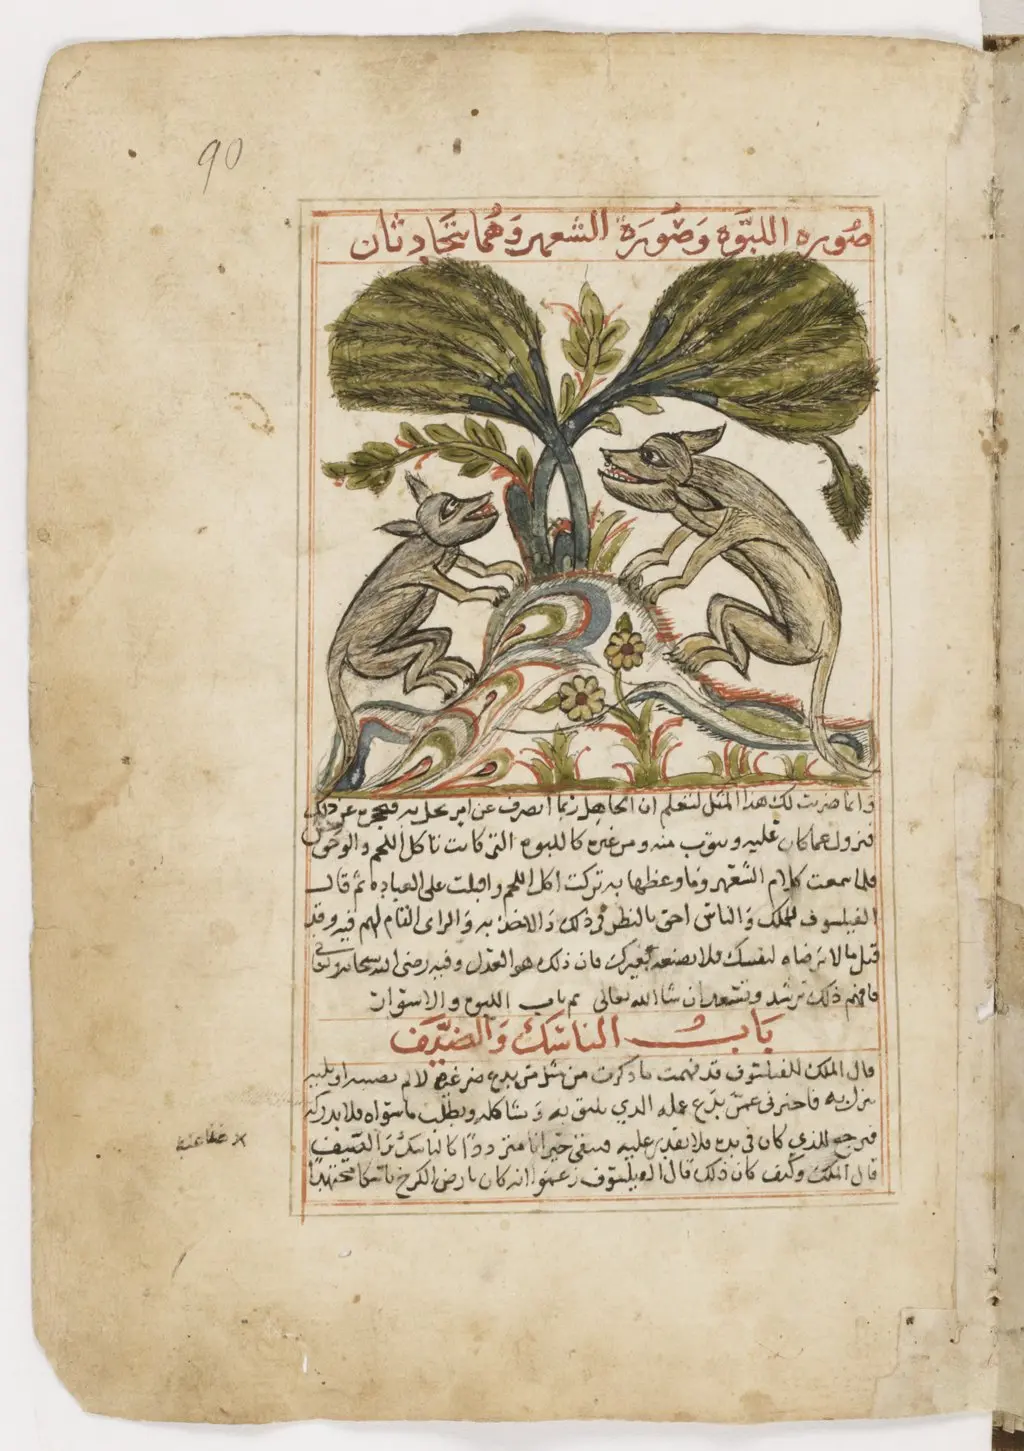 90
صوره اللبوة وصورة الشعهر وهما يتحادثان
وانما ضربت لك هذا المثل لتعلم ان الجاهل ربما انصرف عن امر يحل به فيجره عن ذلك
فنزول عما كان عليه ويتوب منه ومن غيره كاللبوه التي كانت تأكل اللحم والوحوش
فلما سمعت كلام الشعهر وما وعظها به تركت اكل اللحم واقبلت على العباده ثم قال
الفيلسوف للملك والناس احق بالنظر في ذلك والاخذ به والراى التام لهم فيه وقد
قيل ما لا ترضاه لنفسك فلا تصنعه لغيرك فان ذلك هو العدل وفيه رضى الله سبحانه وتعالى
فافهم ذلك ترشد وتسعد ان شا الله تعالى تم باب اللبوه والاسوار
باب الناسك والضيف
قال الملك للفيلسوف قد فهمت ما ذكرت من مثل من يدع ضر غيره لا لم يصيبه او يلبيه
ينزل به فاخبرني عمن يدع عمله الذي يليق به ويشاكله ويطلب ما سواه فلا يدركه
فيرجع للذي كان في يده فلا يقدر عليه فيبقى حيرانا مترددا كالناسك والضيف
قال الملك وكيف كان ذلك قال الفيلسوف زعموا انه كان بارض الكرخ ناسكا مجتهدا